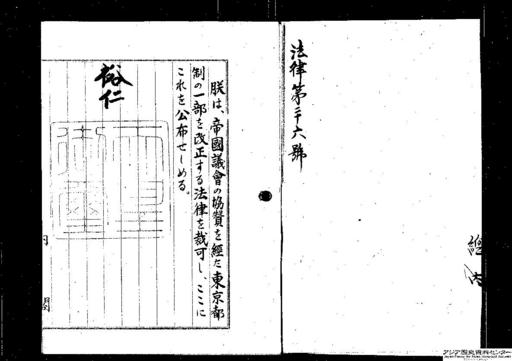 法律第二十六號
朕は、帝國議會の協贊を經た東京都
制の一部を改正する法律を裁可し、ここに
これを公布せしめる。
裕仁
天皇御璽
内閣
アジア歴史資料センター
Japan Center for Asian Historical Records